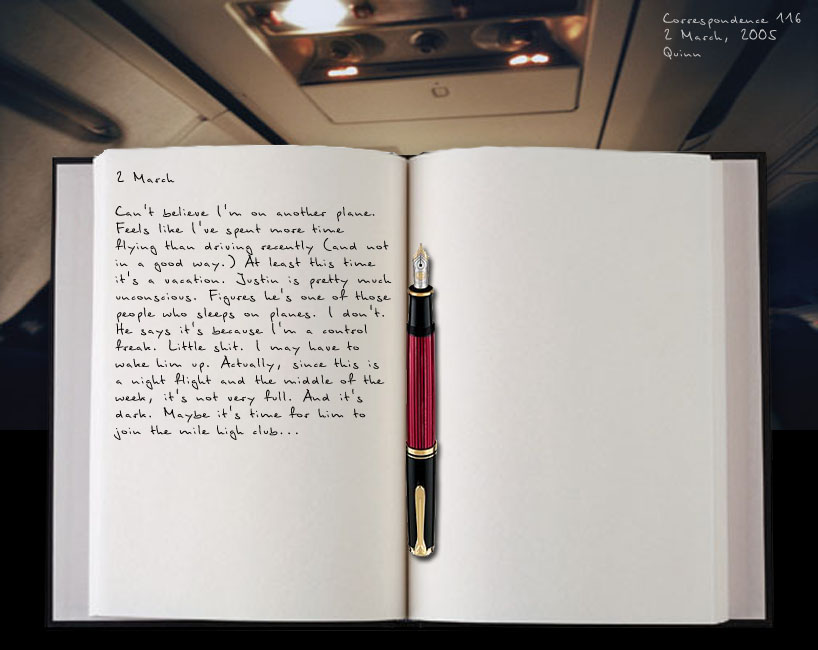 Correspondence 116
2 March, 2005
Quinn
2 March
Can't believe I'm on another plane.
Feels like I've spent more time
flying than driving recently (and not
in a good way.) At least this time
it's a vacation. Justin is pretty much
unconscious. Figures he's one of those
people who sleeps on planes. I don't.
He says it's because I'm a control
freak. Little shit. I may have to
wake him up. Actually, since this is
a night flight and the middle of the
week, it's not very full. And it's
dark. Maybe it's time for him to
join the mile high club...